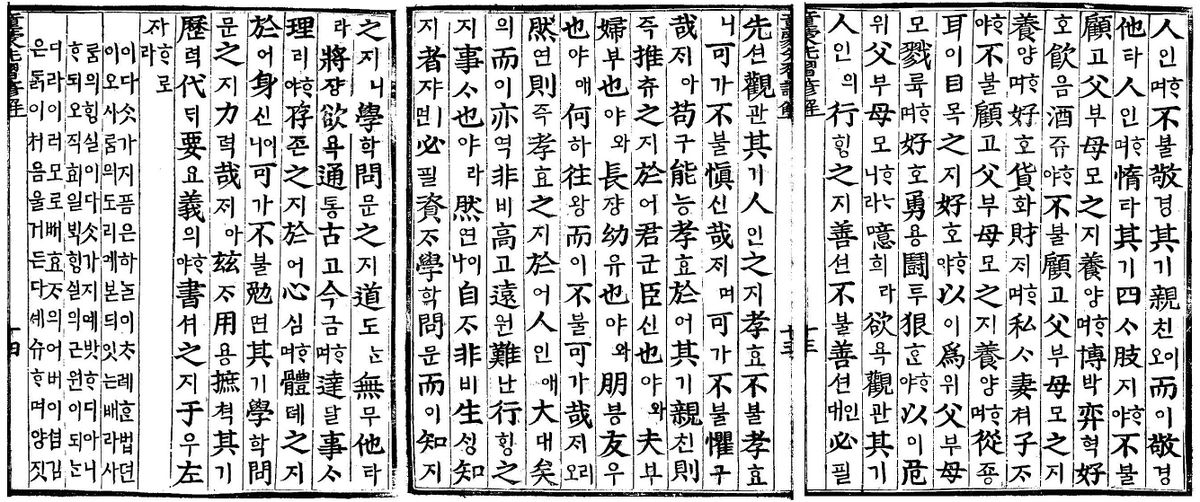 人인ᄒᆞ며不불敬경其기親친이오而이敬경
他타人인ᄒᆞ며惰타其기四ᄉᆞ肢지ᄒᆞ야不불
顧고父부母모之지養양ᄒᆞ며博박弈혁好
호飮음酒쥬ᄒᆞ야不불顧고父부母모之지
養양ᄒᆞ며好호貨화財ᄌᆡᄒᆞ며私ᄉᆞ妻쳐子ᄌᆞ
ᄒᆞ야不불顧고父부母모之지養양ᄒᆞ며從죵
耳이目목之지好호ᄒᆞ야以이爲위父부母
모戮륙ᄒᆞ며好호勇용鬪투狠흔ᄒᆞ야以이危
위父부母모ᄒᆞᄂᆞ니라噫희라欲욕觀관其기
人인의行ᄒᆡᆼ之지善션不불善션인대必필
童蒙先習諺解
十三
先션觀관其기人인之지孝효不불孝효
니可가不불愼신哉ᄌᆡ며可가不불懼구
哉ᄌᆡ아苟구能능孝효於어其기親친則
즉推츄之지於어君군臣신也야와夫부
婦부也야와長쟝幼유也야와朋붕友우
也야애何하往왕而이不불可가哉ᄌᆡ리오
然연則즉孝효之지於어人인애大대矣
의而이亦역非비高고遠원難난行ᄒᆡᆼ之
지事ᄉᆞ也야라然연이나自ᄌᆞ非비生ᄉᆡᆼ知
지者쟈ㅣ면必필資ᄌᆞ學학問문而이知지
之지니學학問문之지道도ᄂᆞᆫ無무他타
라將쟝欲욕通통古고今금ᄒᆞ며達달事ᄉᆞ
理리ᄒᆞ야存존之지於어心심ᄒᆞ며體톄之지
於어身신이니可가不불勉면其기學학問
문之지力력哉ᄌᆡ아玆ᄌᆞ用용摭쳑其기
歷력代ᄃᆡ要요義의ᄒᆞ야書셔之지于우左
자ᄒᆞ로라
이다ᄉᆞᆺ가지픔은하ᄂᆞᆯ이ᄎᆞ례ᄒᆞᆫ법뎐
이오사ᄅᆞᆷ의도리예본ᄃᆡ잇ᄂᆞᆫ배라사
ᄅᆞᆷ의ᄒᆡᆼ실이다ᄉᆞᆺ가지예밧ᄒᆞ디아니
ᄒᆞ되오직효일ᄇᆡᆨᄒᆡᆼ실의근원이되ᄂᆞᆫ
디라이러모로ᄡᅥ효ᄌᆞ의어버이셤김
은ᄃᆞᆰ이처음울거든다셰슈ᄒᆞ며양짓
童蒙先習諺解
十四